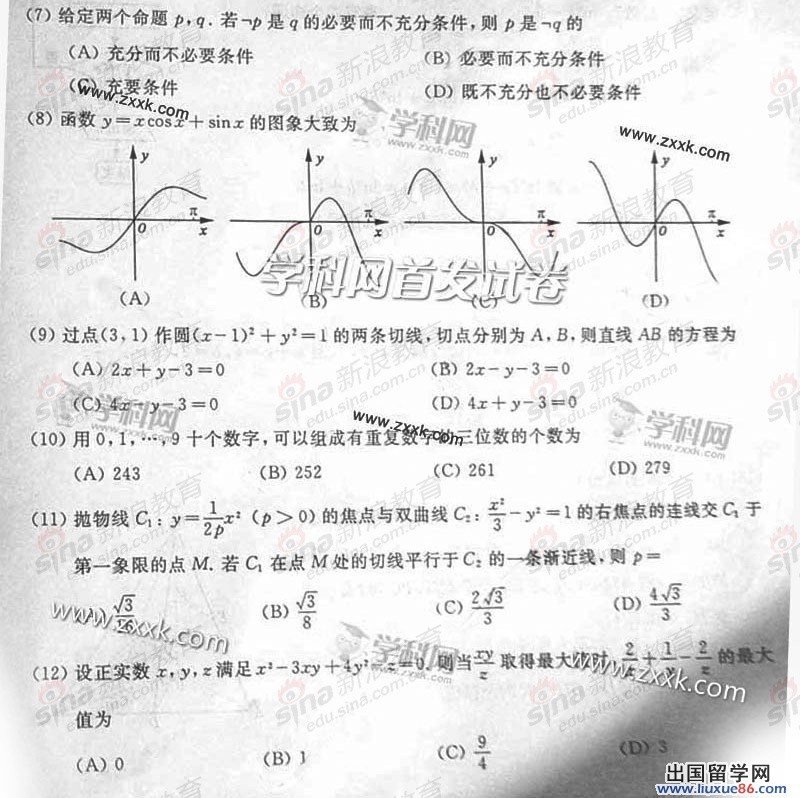 (7) 给定两个命题 p, q. 若¬p 是 q 的必要而不充分条件, 则 p 是¬q 的
(A) 充分而不必要条件 (B) 必要而不充分条件
(C) 充要条件 (D) 既不充分也不必要条件
(8) 函数 y=xcosx+sinx 的图象大致为
y y y y
π π π π
O x O x O x O x
(A) (B) (C) (D)
(9) 过点(3, 1) 作圆(x-1)²+y²=1 的两条切线, 切点分别为 A, B, 则直线 AB 的方程为
(A) 2x+y-3=0 (B) 2x-y-3=0
(C) 4x-y-3=0 (D) 4x+y-3=0
(10) 用 0, 1, …, 9 十个数字, 可以组成有重复数字的三位数的个数为
(A) 243 (B) 252 (C) 261 (D) 279
(11) 抛物线 C₁: y=1/2p x² (p>0) 的焦点与双曲线 C₂: x²/3-y²=1 的右焦点的连线交 C₁ 于
第一象限的点 M. 若 C₁ 在点 M 处的切线平行于 C₂ 的一条渐近线, 则 p=
(A) √3/16 (B) √3/8 (C) 2√3/3 (D) 4√3/3
(12) 设正实数 x, y, z 满足 x²-3xy+4y²-z=0, 则当 xy/z 取得最大值时, 2/x+1/y-2/z 的最大
值为
(A) 0 (B) 1 (C) 9/4 (D) 3
学科网首发试卷
学科网
www.zxxk.com
sina新浪教育
edu.sina.com.cn
出国留学网
www.liuxue86.com